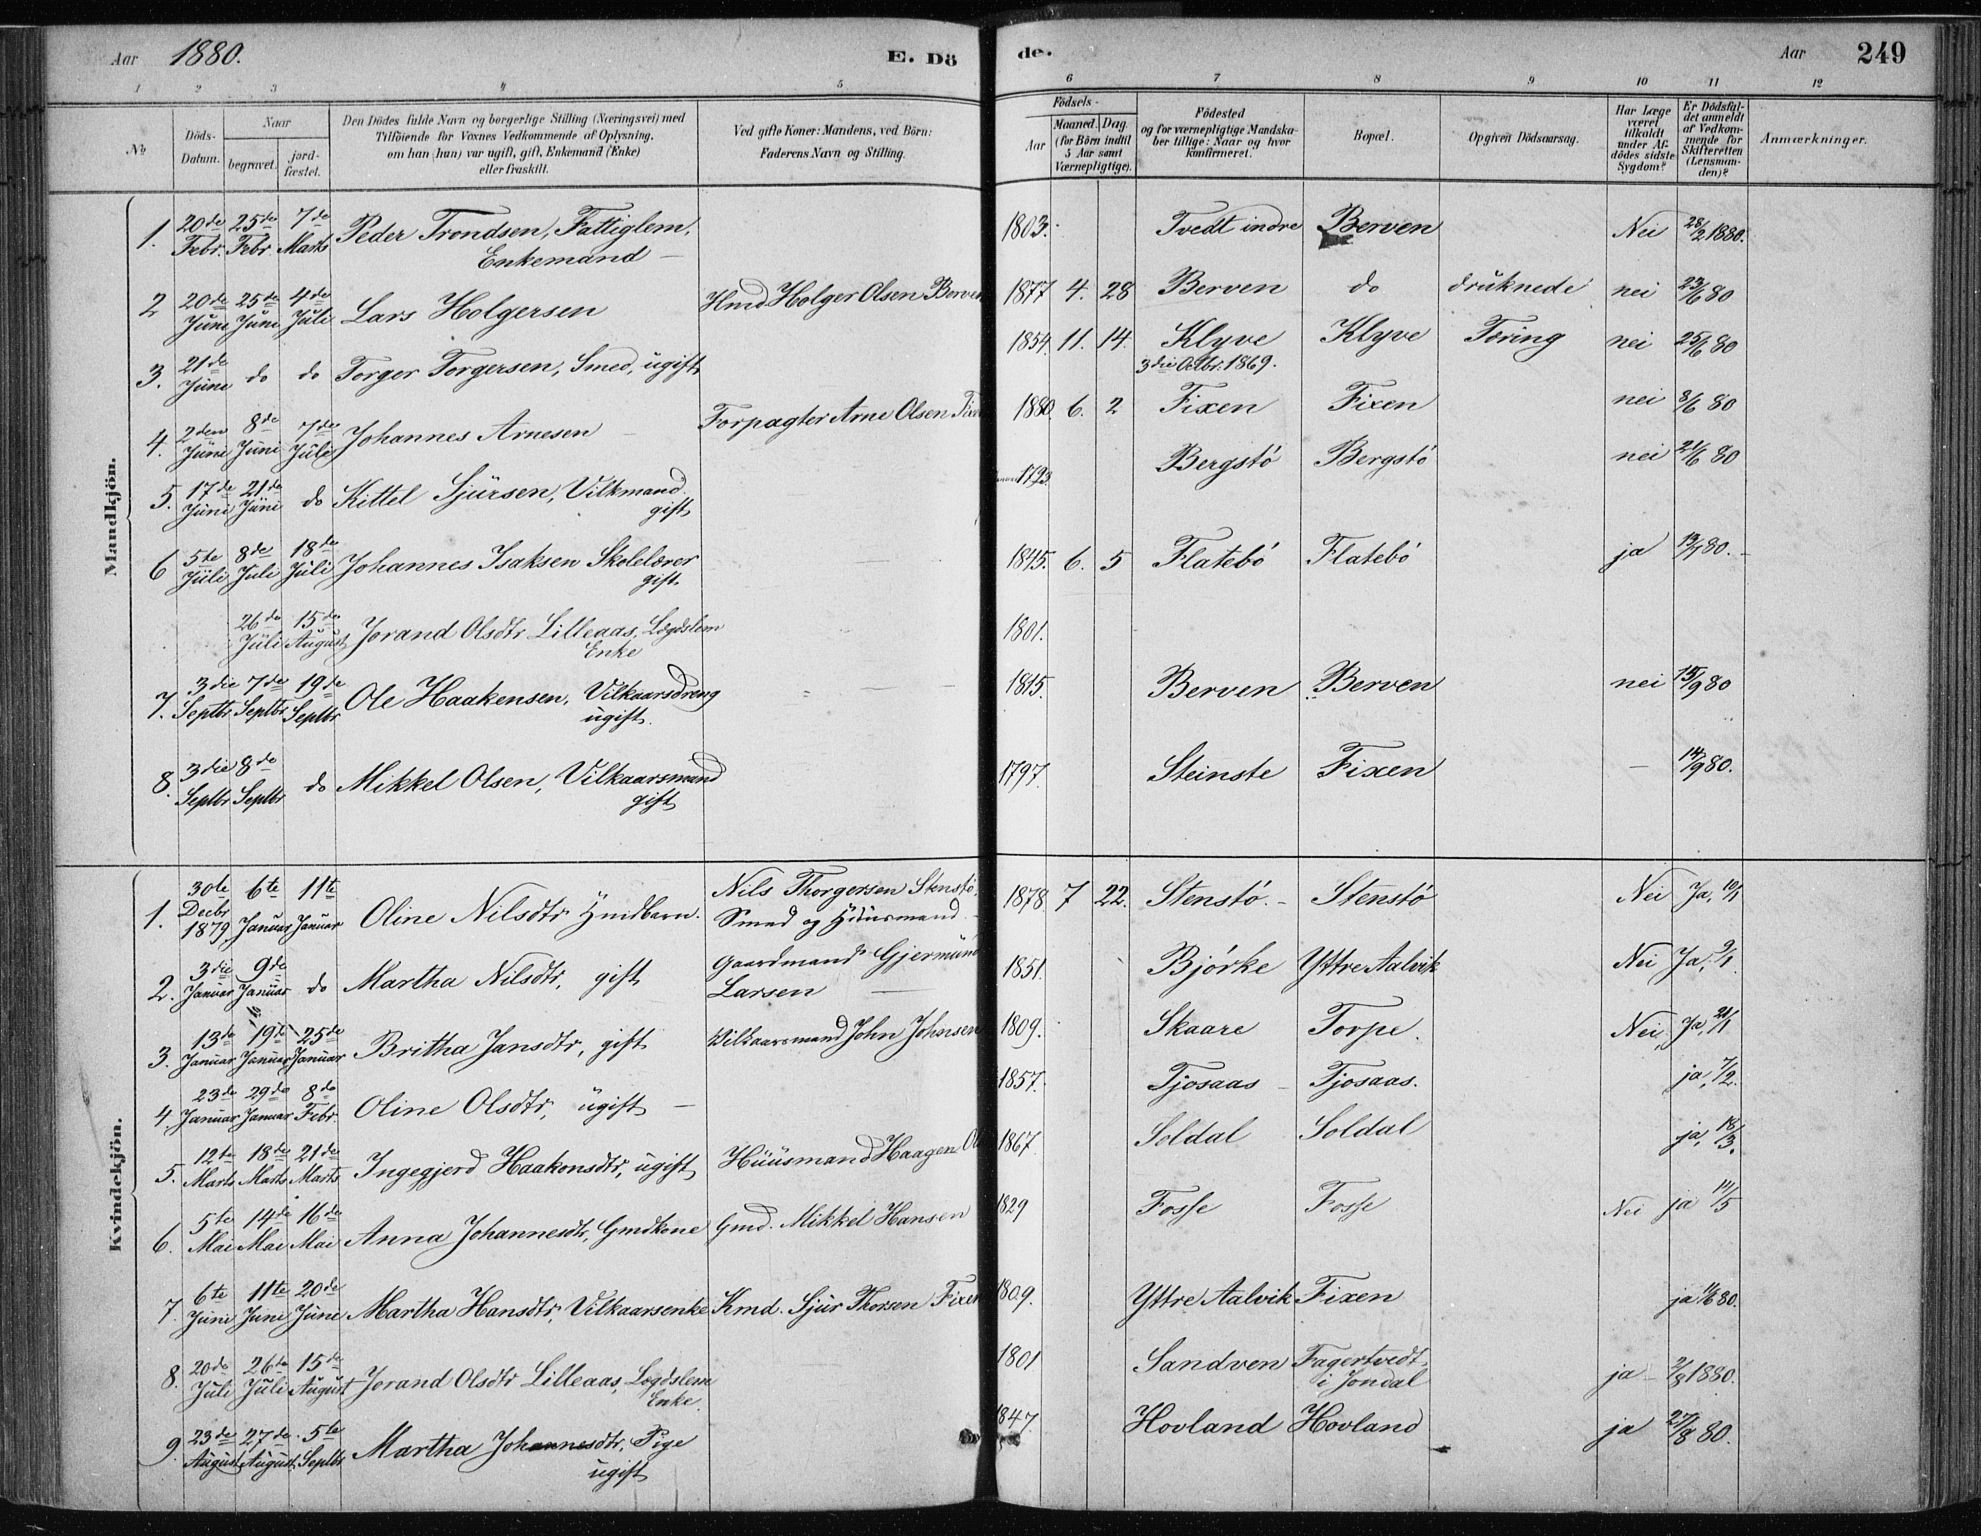 Aar 1880. E. Dö
de. Aar 249
1 2 3 4 5
6 7 8 9 10 11 12
No
Döds-Datum.
Naar
begravet.
jord-fæstet.
Den Dödes fulde Navn og borgerlige Stilling (Næringsvei) med
Tilföiende for Voxnes Vedkommende af Oplysning,
om han (hun) var ugift, gift, Enkemand (Enke)
eller fraskilt.
Ved gifte Koner: Mandens, ved Börn:
Faderens Navn og Stilling.
Födsels-
Aar
Maaned. Dag.
(for Börn indtil
5 Aar samt
Værnepligtige).
Födested
og for værnepligtige Mandska-
ber tillige: Naar og hvor
konfirmeret.
Bopæl.
Opgiven Dödsaarsag.
Har Læge
været
tilkaldt
under Af-
dödes sidste
Sygdom?
Er Dödsfal-
det anmeldt
af Vedkom-
mende for
Skifteretten
(Lensman-
den)?
Anmærkninger.
Mandkjön.
1. 20de Febr. 25de Febr 7de Marts Peder Trondsen, Fattiglem, Enkemand 1803. Tvedt indre Berven Nei 28/2 1880.
2 20de Juni 25de Juni 4de Juli Lars Holgersen Hmd Holger Olsen Berven 1877 4. 28 Berven do druknede nei 23/6 80
3. 21de Juni do do Torger Torgersen, Smed, ugift, 1854. 11. 14. Klyve 3die Octbr. 1869. Klyve Tæring nei 25/6 80
4. 2den Juni 8de Juni 7de Juli Johannes Arnesen Forpagter Arne Olsen 1880. 6. 2 Fixen Fixen nei 8/6 80
5. 17de Juni 21de Juni do Kittel Sjursen, Vilkmand. gift, 1793 Bergstö Bergstö nei 21/6 80
6 5te Juli 8de Juli 18de Juli Johannes Isaksen Skolelærer gift. 1845. 6. 5 Flatebö Flatebö ja 80.
26de Juli 15de August Jorand Olsdtr Lilleaas, Lægdslem Enke 1801.
7. 3die Septbr 7de Septbr 19de Septbr Ole Haakensen, Vilkaarsdreng ugift. 1815. Berven Berven nei 15/9 80
8. 3die Septbr 8de Septbr do Mikkel Olsen, Vilkaarsmand gift, 1797. Steinstø Fixen — 14/9 80.
Kvindekjön.
1. 30te Decbr 1879 6te Januar 11te Januar Oline Nilsdtr, Hmdbarn. Nils Thorgersen Stenstö. Smed og Huusmand 1878 7 22. Stenstö. Stenstö Nei Ja, 10/1
2. 3die Januar 9de Januar do Martha Nilsdtr, gift Gaardmand Gjermund Larsen 1851. Bjórke Yttre Aalvik Nei Ja, 9/1
3. 13de Januar 19de Januar 25de Januar Britha Jansdtr, gift Vilkaarsmand John Johnsen 1809. Skaare Torpe. Nei, Ja, 21/1
4. 23de Januar 29de Januar 8de Febr. Oline Olsdtr, ugift 1857. Tjosaas Tjosaas. ja, 7/2.
5. 12te Marts 18de Marts 21de Marts Ingegjerd Haakonsdtr, ugift Huusmand Haagen 1867. Soldal Soldal ja, 18/3.
6. 5te Mai 14de Mai 16de Mai Anna Johannesdtr, Gmdkone Gmd. Mikkel Hansen 1829 Fosse Fosse Nei ja 14/5
7. 6te Juni 11te Juni 20de June Martha Hansdtr, Vilkaarsenke Kmd. Sjur Thorsen Fixen 1809. Yttre Aalvik Fixen ja 11/6 80.
8. 20de Juli 26de Juli 15de August Jorand Olsdtr Lilleaas, Lægdslem Enke. 1801 Sandven Fagertvedt i Jondal ja 2/8 1880.
9. 23de August 27de August 5te Septbr Martha Johannesdtr, Pige ugift, 1847. Hovland Hovland ja 27/8 80.